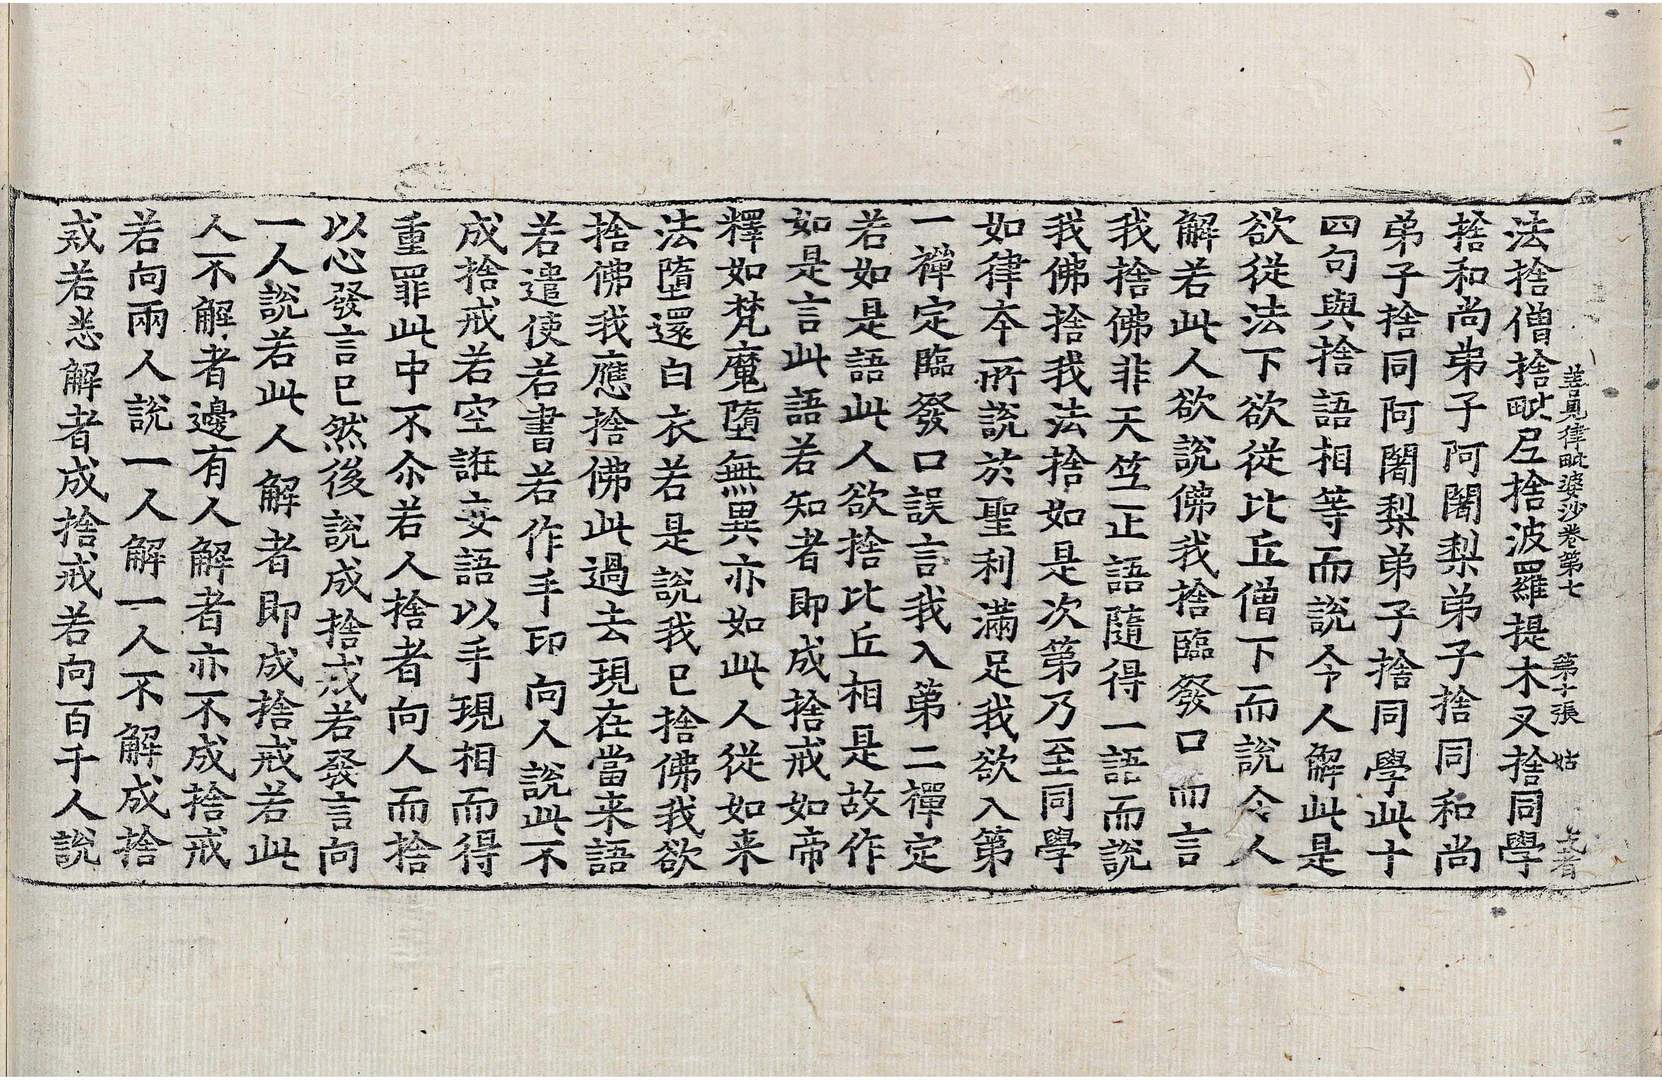 善見律毗婆沙卷第七　第十張　姑
法捨僧捨毗尼捨波羅提木叉捨同學
捨和尚弟子阿闍梨弟子捨同和尚
弟子捨同阿闍梨弟子捨同學此十
四句與捨語相等而說令人解此是
欲從法下欲從比丘僧下而說令人
解若此人欲說佛我捨臨發口而言
我捨佛非天竺正語隨得一語而說
我佛捨我法捨如是次第乃至同學
如律夲所說於聖利滿足我欲入第
一禪定臨發口誤言我入第二禪定
若如是語此人欲捨比丘相是故作
如是言此語若知者即成捨戒如帝
釋如梵魔墮無異亦如此人從如来
法墮還白衣若是說我已捨佛我欲
捨佛我應捨佛此過去現在當来語
若遣使若書若作手印向人說此不
成捨戒若空誑妄語以手現相而得
重罪此中不尒若人捨者向人而捨
以心發言已然後說成捨戒若發言向
一人說若此人解者即成捨戒若此
人不解者邊有人解者亦不成捨戒
若向兩人說一人解一人不解成捨
戒若悉解者成捨戒若向百千人說